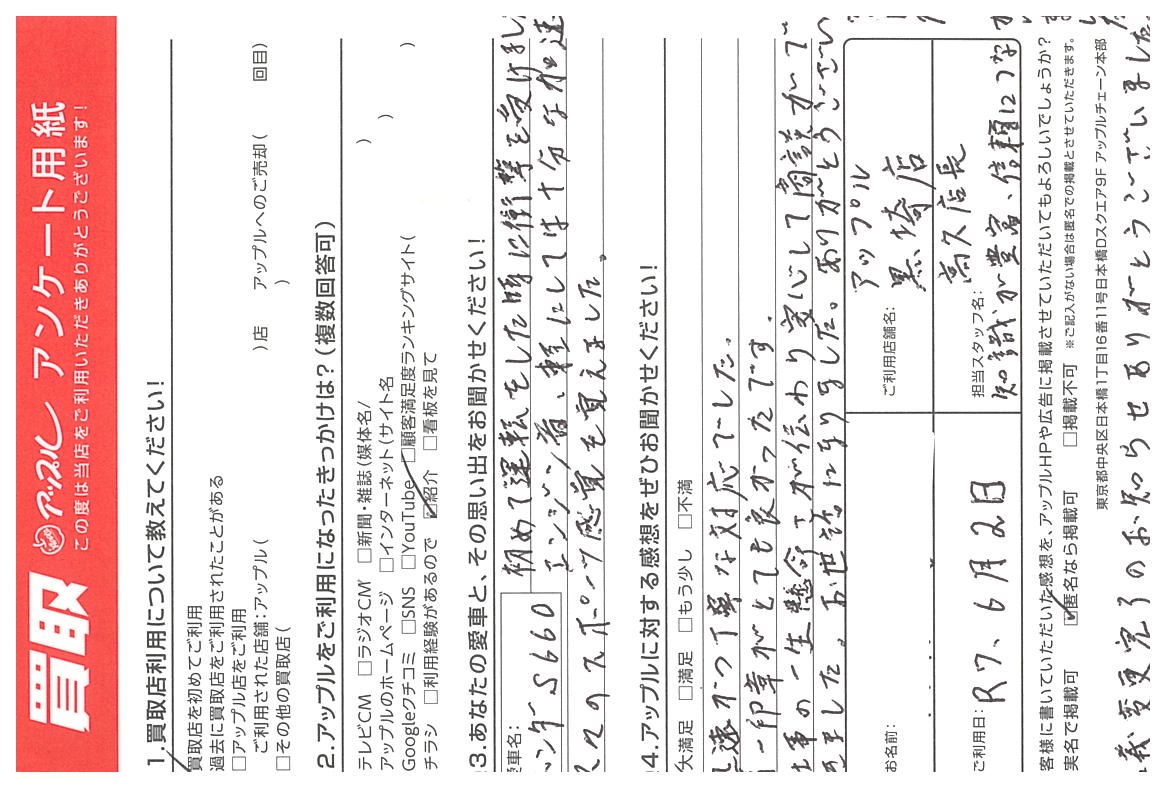 買取 アップル アンケート用紙
この度は当店をご利用いただきありがとうございます！
1.買取店利用について教えてください！
買取店を初めてご利用
過去に買取店をご利用されたことがある
□アップル店をご利用
ご利用された店舗:アップル( )店 アップルへのご売却( 回目)
□その他の買取店( )
2.アップルをご利用になったきっかけは？(複数回答可)
テレビCM □ラジオCM □新聞・雑誌(媒体名/ )
アップルのホームページ □インターネット(サイト名 )
Googleクチコミ □SNS □YouTube □顧客満足度ランキングサイト( )
チラシ □利用経験があるので ☑紹介 □看板を見て
3.あなたの愛車と、その思い出をお聞かせください！
愛車名:
ンダ-S660
初めて運転をした時に衝撃を受けまし
エンジン音、軽にしては十分な加速
スのスポーツ感覚を覚えました。
4.アップルに対する感想をぜひお聞かせください！
大満足 □満足 □もう少し □不満
速かつ丁寧な対応でした。
一印章がとても良かったです。
仕事の一生懸命さが伝わり安心して商談ができ
ました。お世話になりました。ありがとうござい
お名前:
ご利用店舗名:
アップル
黒埼店
ご利用日:
R7、6月2日
担当スタッフ名:
高久店長
知識が豊富、信頼につな
客様に書いていただいた感想を、アップルHPや広告に掲載させていただいてもよろしいでしょうか？
実名で掲載可 ☑匿名なら掲載可 □掲載不可 ※ご記入がない場合は匿名での掲載とさせていただきます。
東京都中央区日本橋1丁目16番11号日本橋Dスクエア9F アップルチェーン本部
義変更完了のお知らせありがとうございました